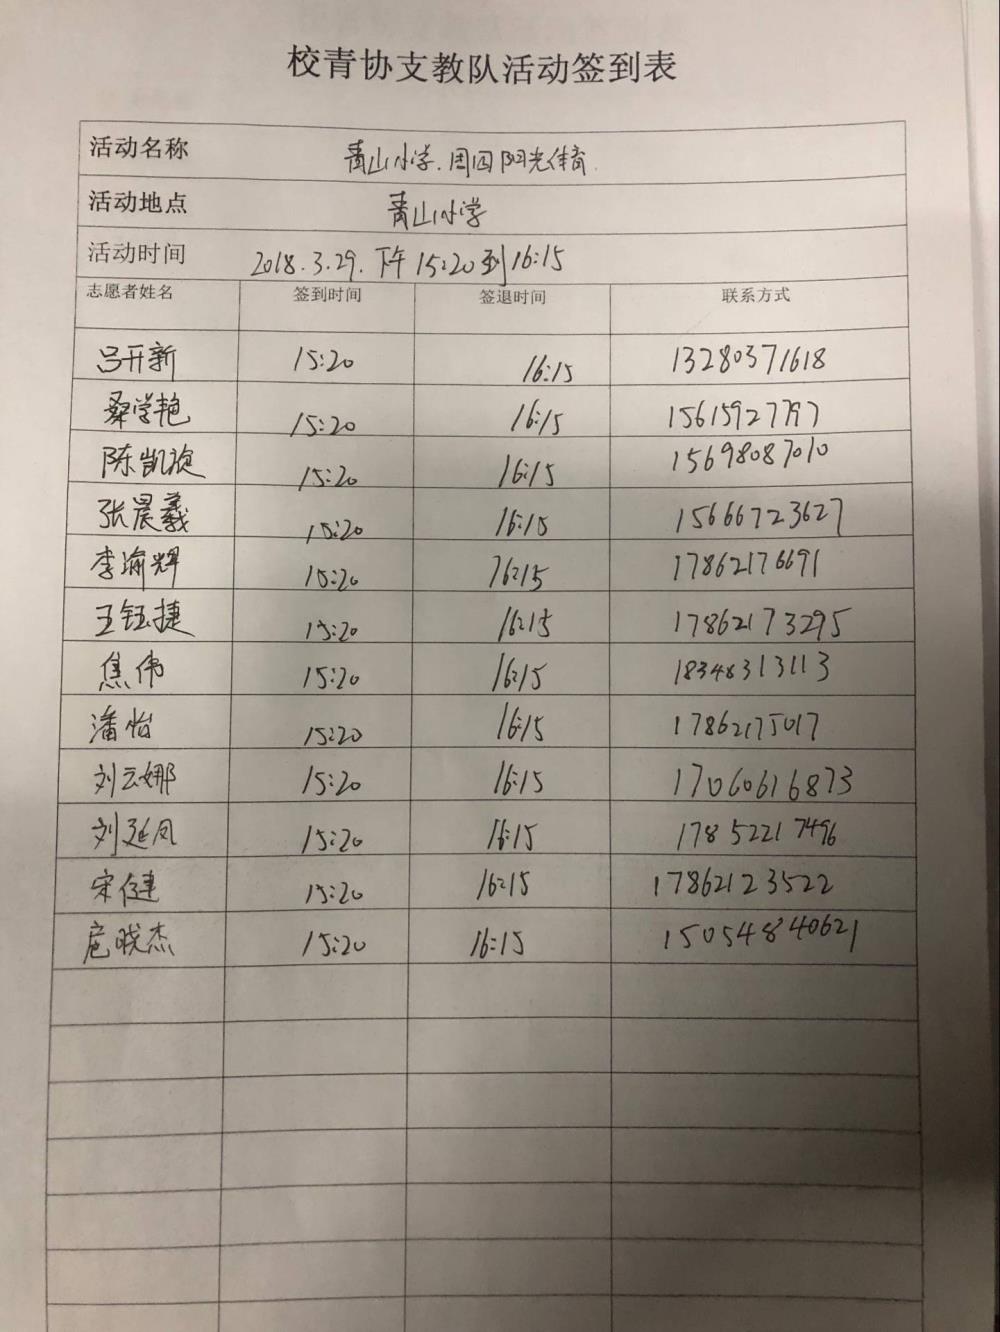 校青协支教队活动签到表
活动名称 青山小学.周四阳光体育.
活动地点 青山小学
活动时间 2018.3.29.下午15:20到16:15
志愿者姓名 签到时间 签退时间 联系方式
吕开新 15:20 16:15 13280371618
桑学艳 15:20 16:15
陈凯旋 15:20 16:15 15698087010
张晨羲 15:20 16:15 15666723627
李瑜辉 15:20 16:15 17862176691
王钰捷 15:20 16:15 17862173295
焦伟 15:20 16:15 18348313113
潘怡 15:20 16:15 17862175017
刘云娜 15:20 16:15 17060616873
刘延凤 15:20 16:15 17852217496
宋健 15:20 16:15 17862123522
扈晓杰 15:20 16:15 15054840621